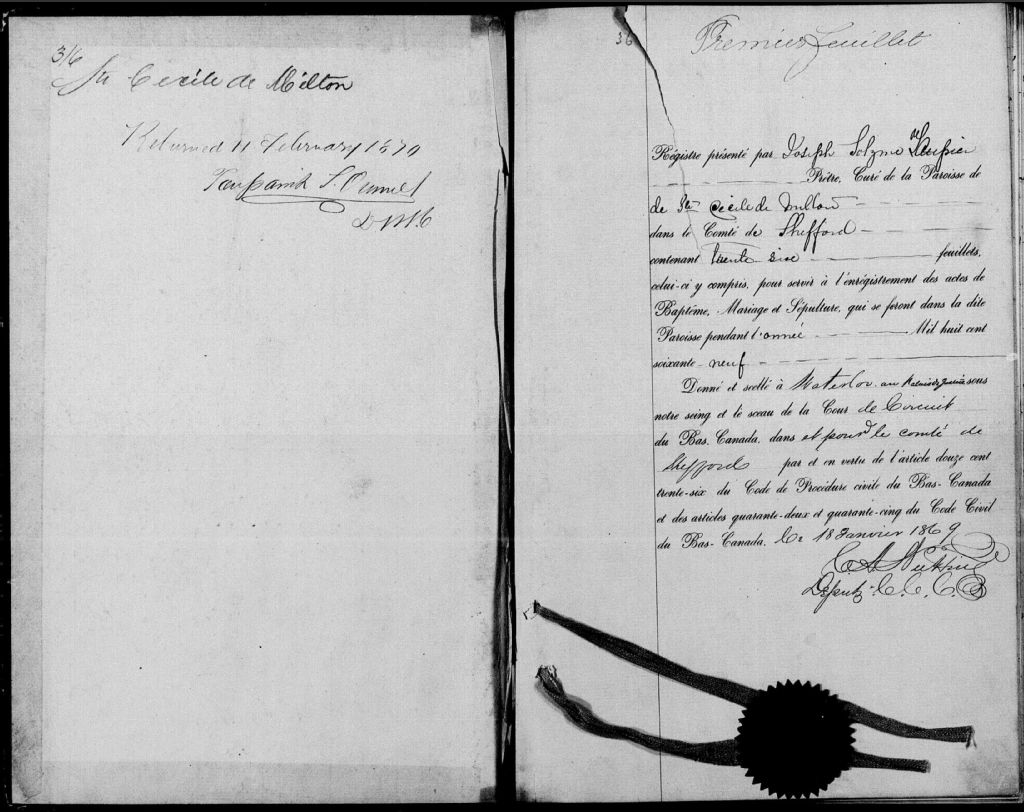 316
Ste Cecile de Milton
Returned 11 February 1870
36
Premier feuillet
Régistre présenté par Joseph
Prêtre, Curé de la Paroisse de
de Ste Cécile de Milton
dans le Comté de Shefford
contenant trente six feuillets,
celui-ci y compris, pour servir à l'enrégistrement des actes de
Baptême, Mariage et Sépulture, qui se feront dans la dite
Paroisse pendant l'année Mil huit cent
soixante-neuf
Donné et scellé à Waterloo au sous
notre seing et le sceau de la Cour de Circuit
du Bas-Canada, dans et pour le comté de
Shefford par et en vertu de l'article douze cent
trente-six du Code de Procédure civile du Bas-Canada
et des articles quarante-deux et quarante-cinq du Code Civil
du Bas-Canada. Ce 18 Janvier 1869
Deputy C.C.C.